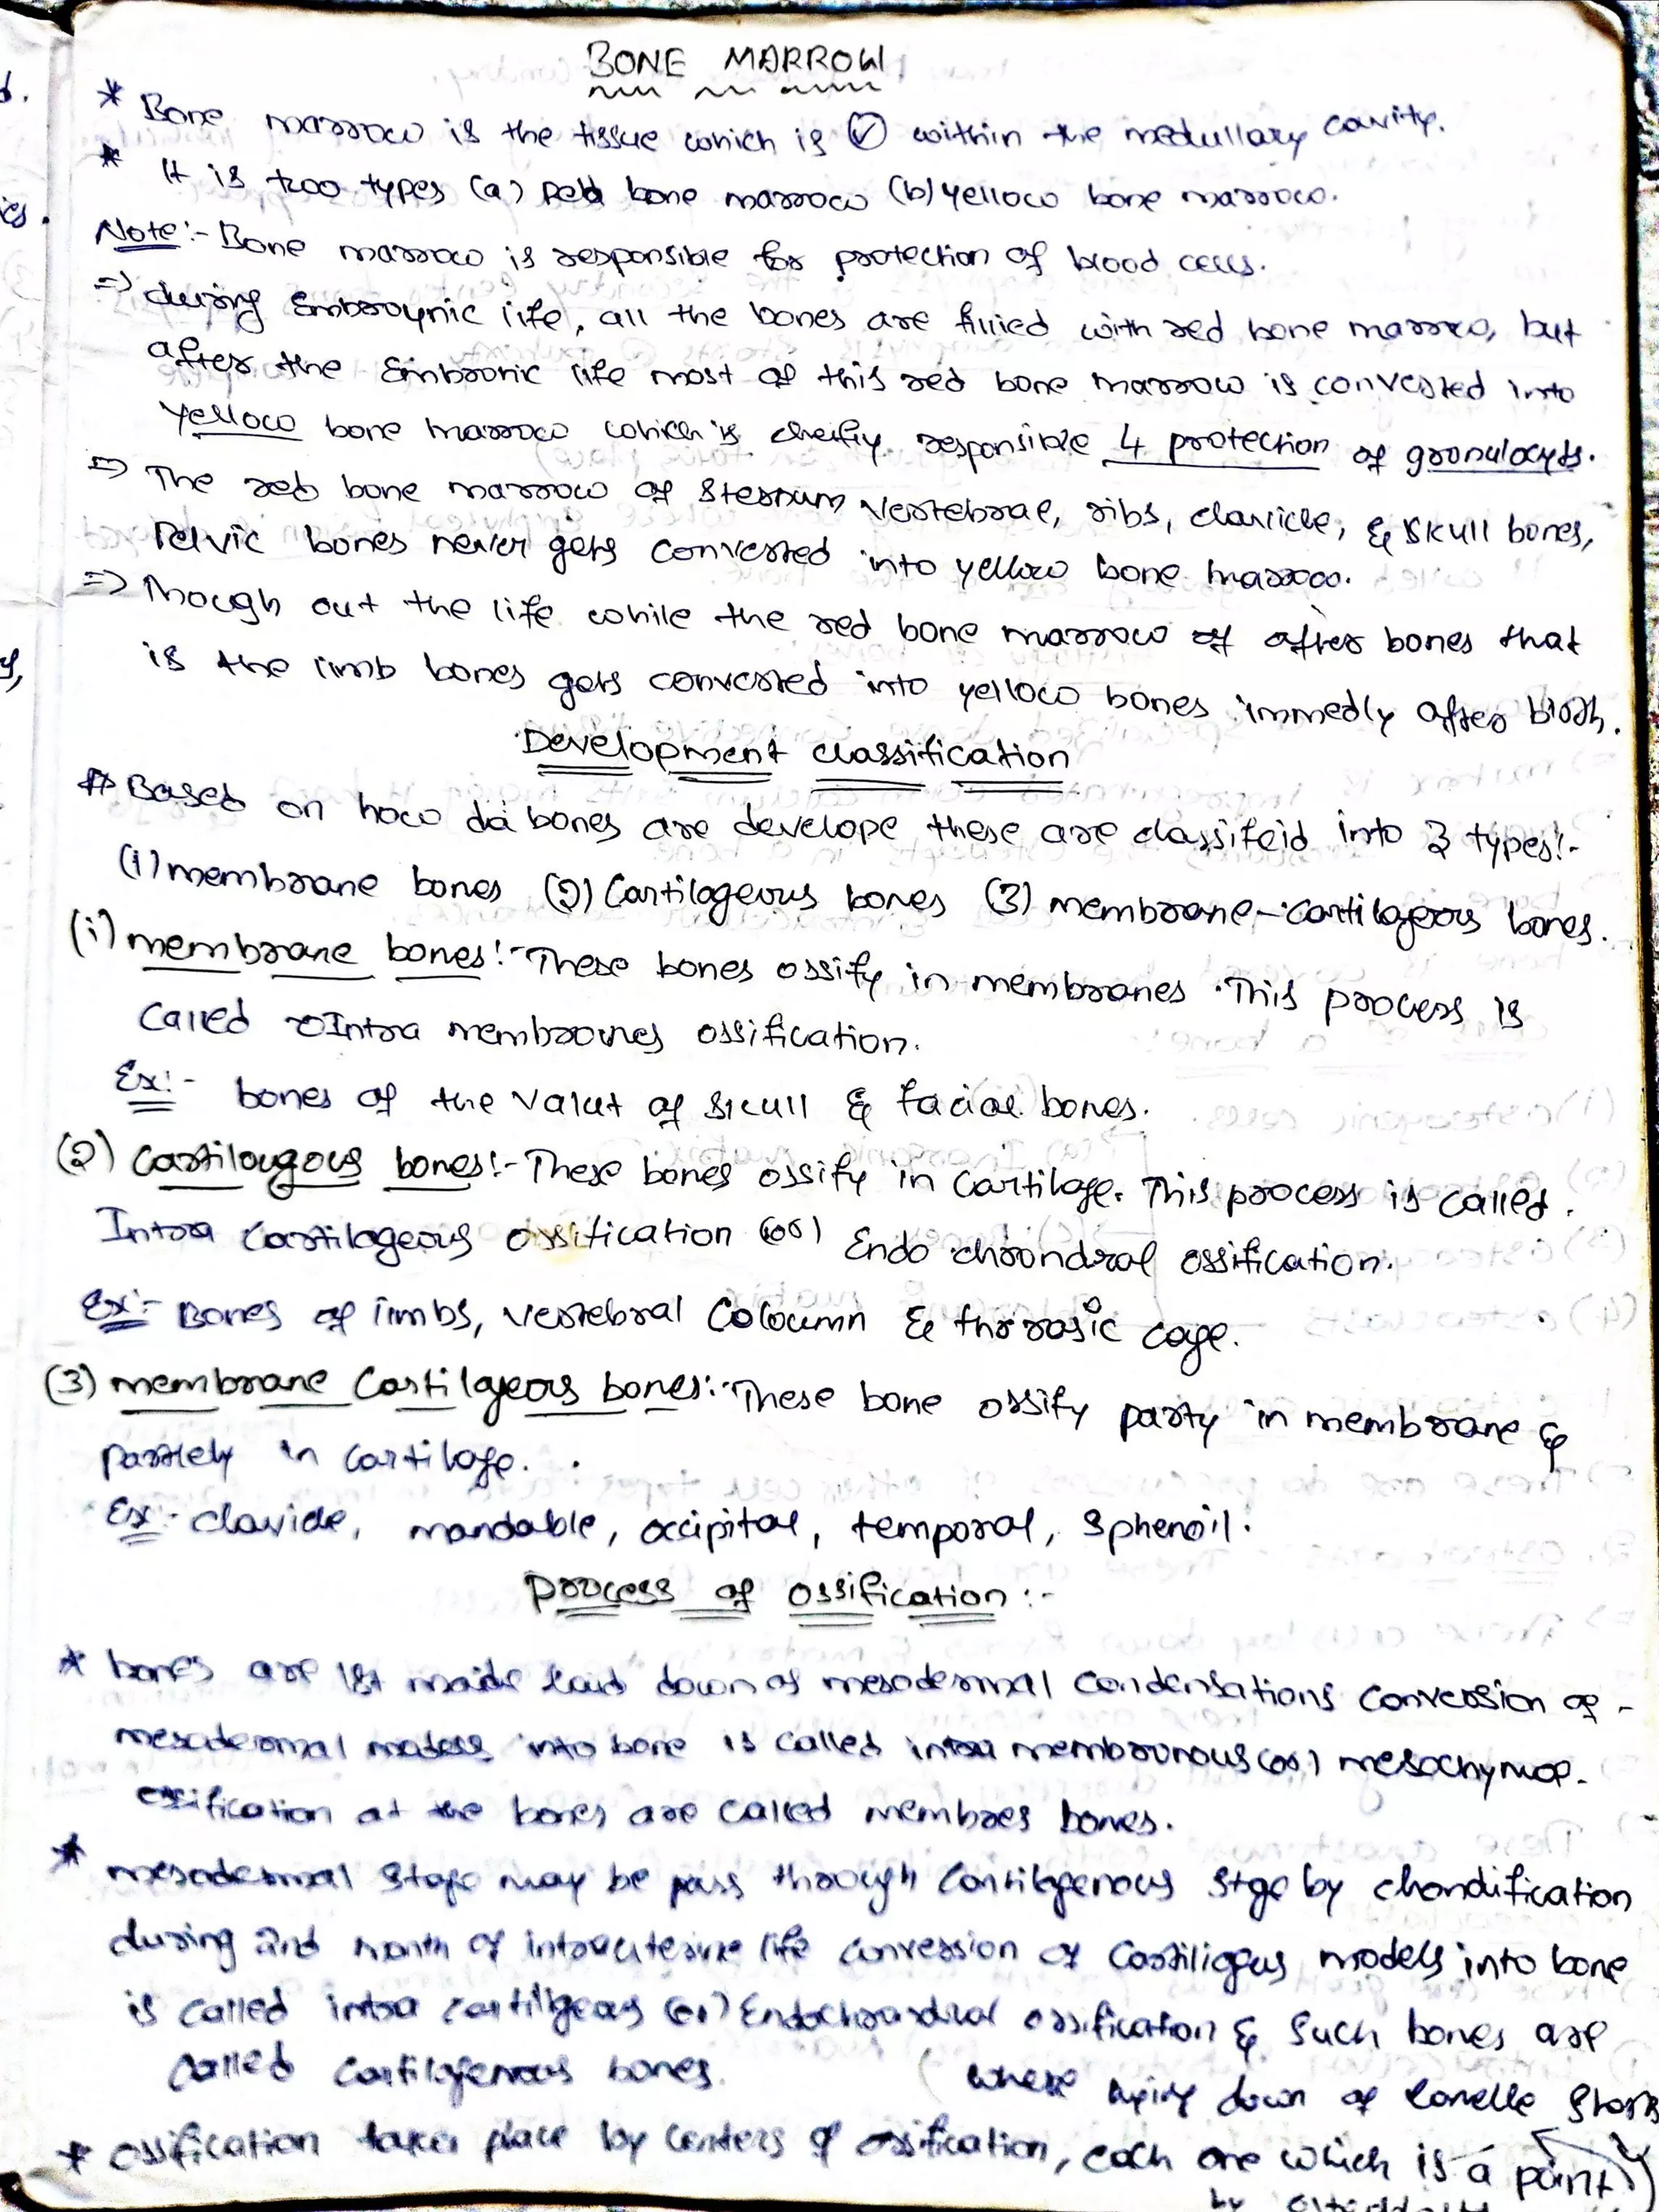 BONE MARROW
* Bone marrow is the tissue which is ✓ within the medullary cavity.
* It is two types (a) Red bone marrow (b) yellow bone marrow.
Note:- Bone marrow is responsible for protection of blood cells.
=> during Embroynic life, all the bones are filled with red bone marrow, but
after the Embronic life most of this red bone marrow is converted into
yellow bone marrow which is cheifly responsible 4 protection of gronulocyts.
=> The red bone marrow of Sternum vertebrae, ribs, clavicle, & skull bones,
Pelvic bones never gets converted into yellow bone marrow.
=> Though out the life while the red bone marrow of after bones that
is the limb bones gets converted into yellow bones immedly after birth.
Development classification
* Based on how da bones are develope these are classifeid into 3 types:-
(1) membrane bones (2) Cartilageous bones (3) membrane-cartilageous bones.
(i) membrane bones:- These bones ossify in membranes. This process is
Called Intra membranes ossification.
Ex:- bones of the valut of skull & facial bones.
(2) Cartilougous bones:- These bones ossify in Cartilage. This process is called.
Intra Cartilageous ossification (or) Endo chrondral ossification.
Ex:- Bones of limbs, vertebral Coloumn & thorrasic cage.
(3) membrane Cartilageous bones:- These bone ossify party in membrane &
partely in cartilage.
Ex:- clavicle, mandable, occipital, temporal, Sphenoil.
Process of Ossification:-
* bones are 1st made laid down of mesodermal Condensations Conversion of -
mesodermal models into bone is called intra membranous (or)
ossification at the bones are called membraes bones.
* mesodermal stage may be pass through Cartilagenous stge by chondification
during 2nd month of intrauterine life conversion of Cartiligeus models into bone
is called intra cartiligeous (or) Endochrondral ossification & Such bones are
Called Cartilagenous bones.
( where laying down of lamelle starts
* ossification takes place by centers of ossification, each one which is a point)
by